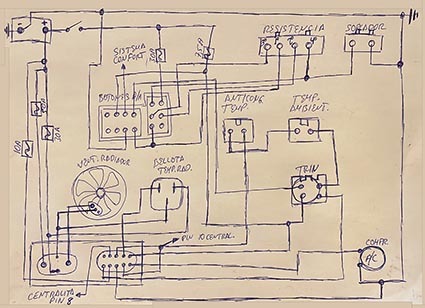 RESISTENCIA
SOPLADOR
SISTEMA
CONFORT
BOTONES A/A
ANTICONG
TEMP.
TEMP.
AMBIENT.
VENT. RADIADOR
BELLOTA
TEMP. RAD.
TRIN
PIN 10 CENTRAL.
COMPR.
A/C
CENTRALITA
PIN 8